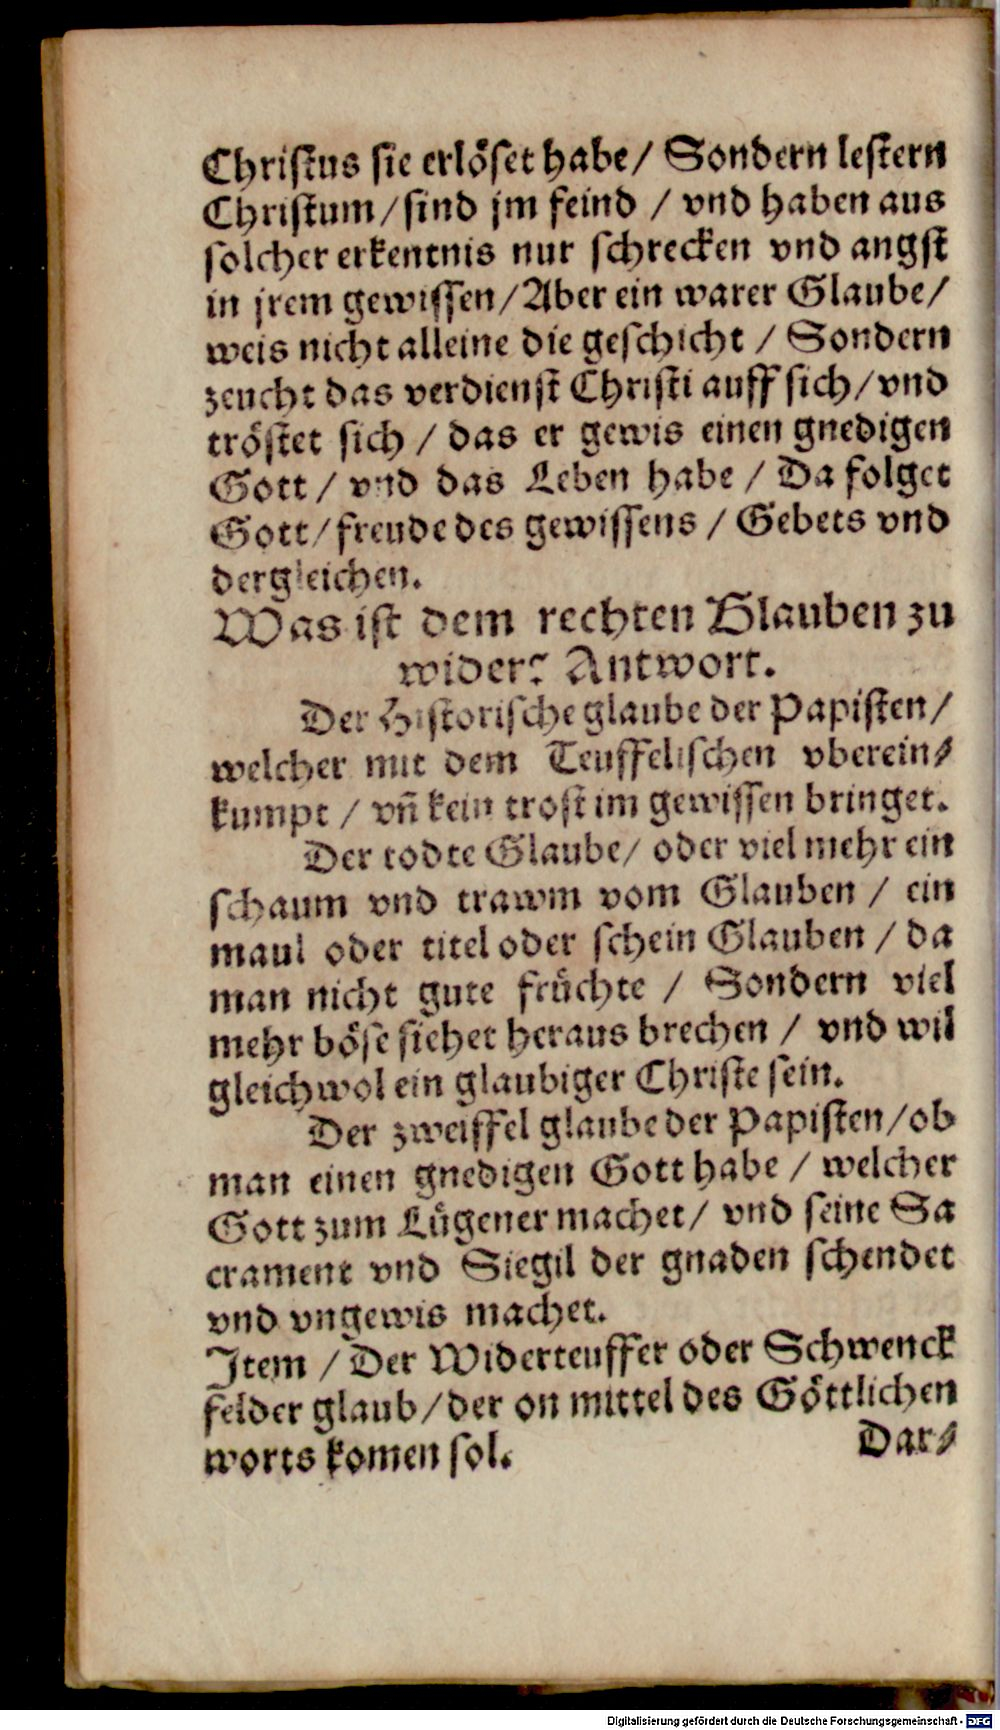 Christus sie erlöset habe/ Sondern lestern
Christum/sind jm feind / vnd haben aus
solcher erkentnis nur schrecken vnd angst
in jrem gewissen/Aber ein warer Glaube/
weis nicht alleine die geschicht / Sondern
zeucht das verdienst Christi auff sich/vnd
tröstet sich / das er gewis einen gnedigen
Gott / vnd das Leben habe / Da folget
Gott/freude des gewissens / Gebets vnd
dergleichen.
Was ist dem rechten Glauben zu
wider? Antwort.
Der Historische glaube der Papisten/
welcher mit dem Teuffelischen vberein⸗
kumpt / vñ kein trost im gewissen bringet.
Der todte Glaube/ oder viel mehr ein
schaum vnd trawm vom Glauben / ein
maul oder titel oder schein Glauben / da
man nicht gute früchte / Sondern viel
mehr böse siehet heraus brechen / vnd wil
gleichwol ein glaubiger Christe sein.
Der zweiffel glaube der Papisten/ob
man einen gnedigen Gott habe / welcher
Gott zum Lügener machet/ vnd seine Sa
crament vnd Siegil der gnaden schendet
vnd vngewis machet.
Item / Der Widerteuffer oder Schwenck
felder glaub/der on mittel des Göttlichen
worts komen sol.
Dar⸗
Digitalisierung gefördert durch die Deutsche Forschungsgemeinschaft - DFG